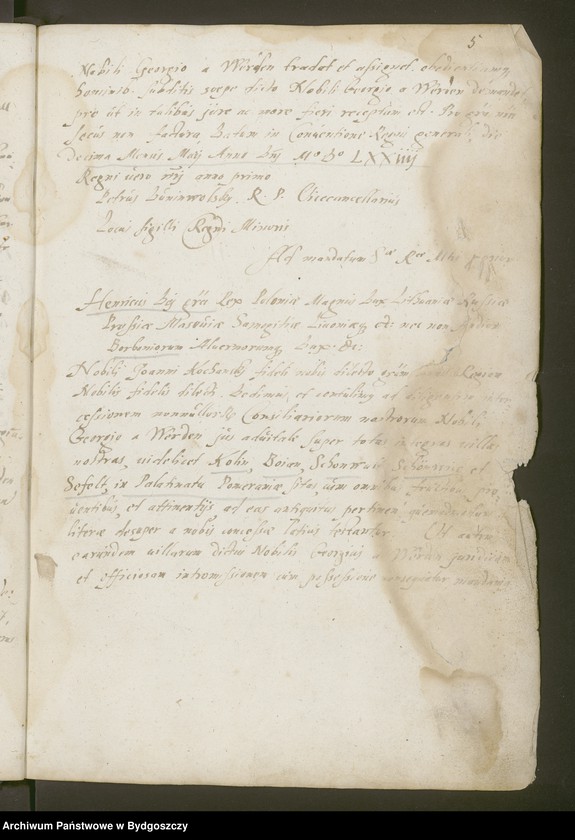 5
Nobili Georgio a Werden tradat et assignet, obedientiamq;
hominib. subditis saepe dicto Nobili Georgio a Werden
pro ut in talibus jure ac more fieri receptum est. Pro gra. nra. non
secus non facturq. Datum in Conventione Regni generali, die
Decima Mensis Maij Anno Dnj Mo. Do. LXXiiij
Regni vero nrj anno primo
Petrus R. P. Vicecancellarius
Locus sigilli Regni Minoris
Ad mandatum S. R. Mtis
Henricus Dej gra. Rex Poloniae Magnus Dux Lithuaniae Russiae
Prussiae Masoviae Samogitiae Livoniaeq. etc: nec non
Borboniorum Alvernorumq. Dux. etc:
Nobilj Joanni Kochansky fideli nobis dilecto gram
Nobilis fidelis dilecte. Dedimus, et contulimus ad
cessionem nonnullorum Consiliariorum nostrorum Nobili
Georgio a Werden jus advitale super totas integras villas
nostras videlicet Kolin, Boian, Schonwicz, et
Sefelt, in Palatinatu Pomeraniae sitas, cum omnibus fructibus,
ventibus, et attinentijs ad eas antiquitus pertinen.
literae desuper a nobis concessae latius testantur. Ut autem
earundem villarum dictus Nobilis Georgius a Werden juridicam
et officiosam intromissionem cum possessione consequatur mandamq.
Archiwum Państwowe w Bydgoszczy